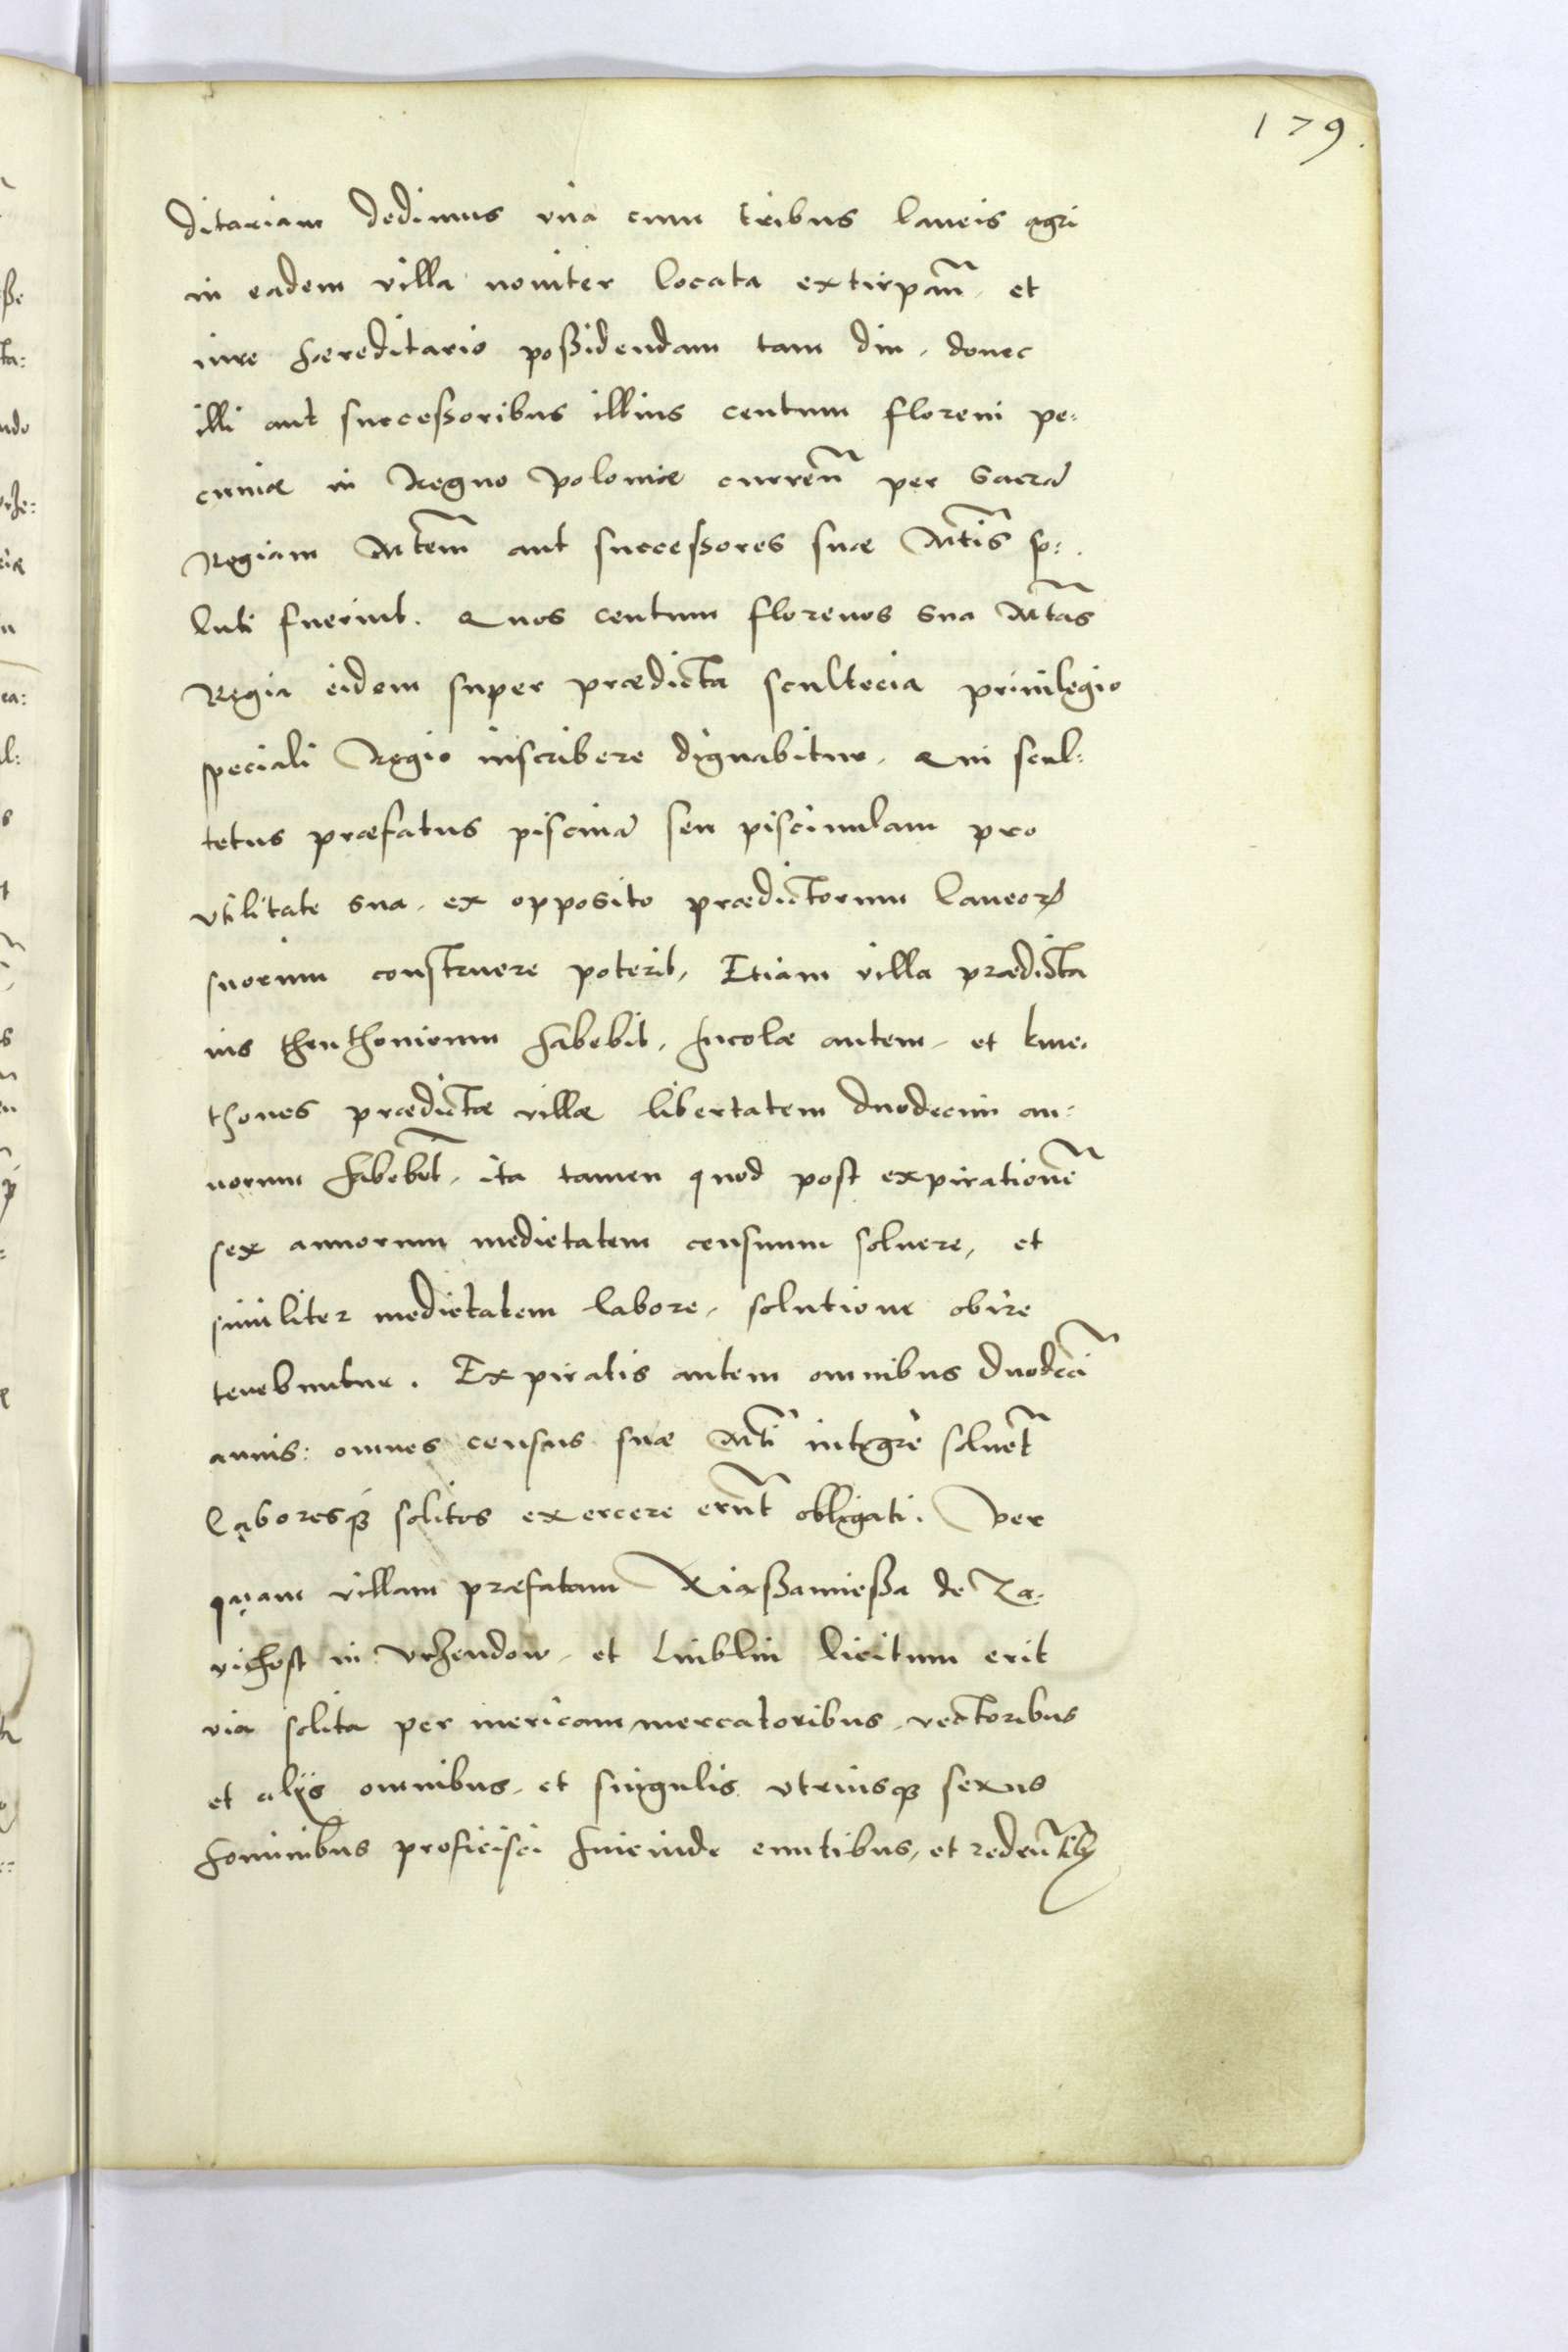 179.
ditariam dedimus vna cum tribus laneis agri
in eadem villa noviter locata extirpan̄. et
iure haereditario poßidendam tam diu, donec
illi aut succeßoribus illius centum floreni pe:
cuniae in Regno Poloniae curren̄ per Sacrā
Regiam Mtem̄ aut succeßores suae Mtis̄ so:
luti fuerint. Quos centum florenos sua Mtas̄
Regia eidem super praedicta scultecia privilegio
speciali Regio inscribere dignabitur. Qui scul:
tetus praefatus piscinā seu piscinulam pro
vtilitate sua, ex opposito praedictorum laneorꝝ
suorum construere poterit, Etiam villa praedicta
ius theuthonicum habebit, Incolae autem, et kme:
thones praedictae villae libertatem duodecim an:
norum habebūt, ita tamen quod post expirationē
sex annorum medietatem censuum soluere, et
similiter medietatem labore, solutione obire
tenebuntur. Expiratis autem omnibus duodecī
annis: omnes census suae Mti̅ integrè soluēt
Laboresqꝫ solitos exercere erūt obligati. Per
quam villam praefatam Xiąßamießa de Za:
vichost in Vrzendow, et Lublin licitum erit
via solita per mericam, mercatoribus, vectoribus
et alijs omnibus, et singulis vtriusqꝫ sexus
hominibus proficisci hincinde euntibus, et redeūtibꝫ